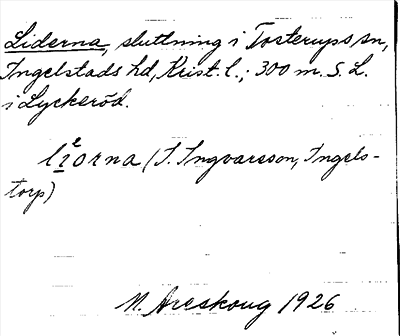 Liderna, sluttning i Tosterups sn,
Ingelstads hd, Krist. l.; 300 m. S. L.
i Lyckeröd.
lìorna (S. Ingvarsson, Ingels-
torp)
N. Areskoug 1926